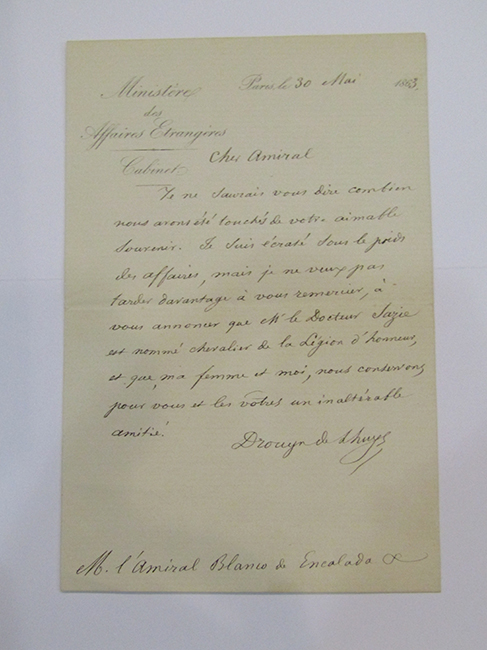 Ministère
des
Affaires Etrangères
Cabinet
Paris, le 30 Mai 1863.
Cher Amiral
Je ne saurais vous dire combien
nous avons été touchés de votre aimable
souvenir. Je suis écrasé sous le poids
des affaires, mais je ne veux pas
tarder davantage à vous remercier, à
vous annoncer que Mr le Docteur Sazie
est nommé chevalier de la Légion d'honneur,
et que, ma femme et moi, nous conservons
pour vous et les vôtres un inaltérable
amitié.
Drouyn de Lhuys
M. l'Amiral Blanco de Encalada